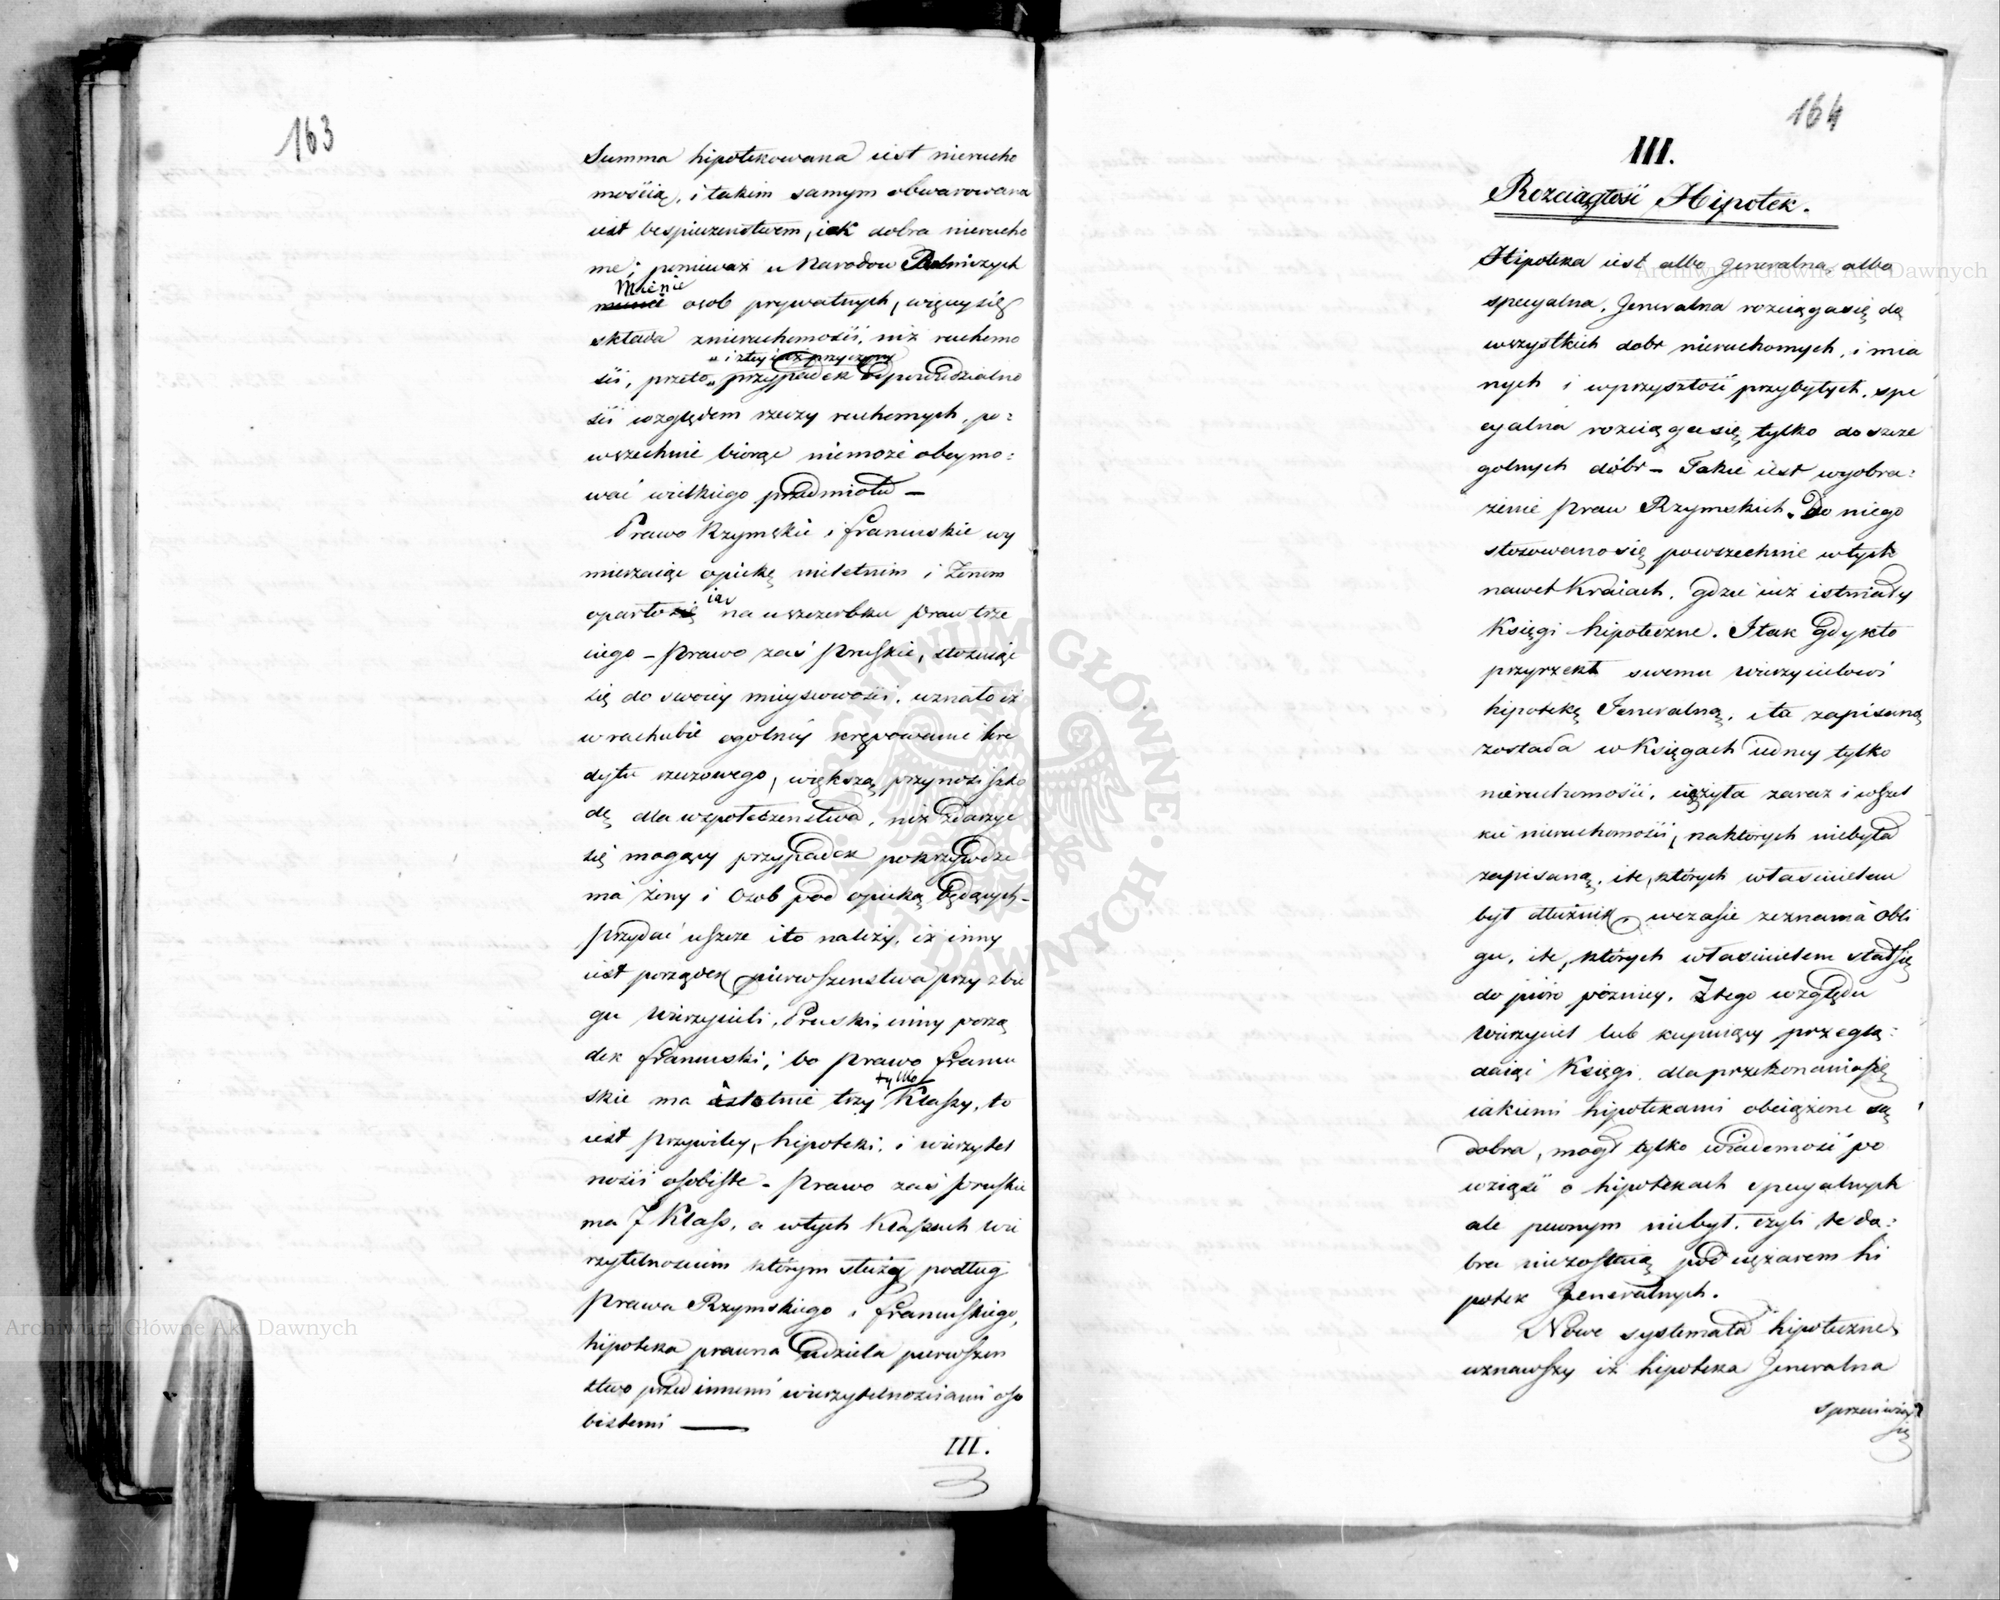 163
Summa hipotekowana iest nierucho
mością, i takim samym obwarowana
iest bespieczenstwem, iak dobra nierucho
me; ponieważ u Narodow Rolniczych
Mienie
osob prywatnych, więcey się
składa z nieruchomości, niż ruchomo
i z tey iuż przyczyny
ści, przeto przypadek odpowiedzialno
ści względem rzeczy ruchomych, po=
wszechnie biorąc niemoże obeymo=
wać wielkiego przedmiotu —
Prawo Rzymskie i francuskie wy
mierzaiąc opiekę nieletnim i Żonom
oparto ią na uszczerbku praw trze
ciego — prawo zaś pruskie, stosuiąc
się do swoiey mieyscowości, uznało iż
w rachubie ogolney skrępowanie kre
dytu rzeczowego, większą przynosi szko
dę dla wspołeczenstwa, niż zdarzyć
się mogący przypadek pokrzywdze
nia żony i Osob pod opieką będących —
przydać ieszcze i to należy, iż inny
iest porządek pierwszenstwa przy zbie
gu Wierzycieli, Pruski, inny porzą
dek francuski; bo prawo francu
tylko
skie ma istotnie trzy Klassy, to
iest przywiley, hipoteki, i wierzytel
ności osobiste — Prawo zaś pruskie
ma 7 Klass, a w tych Klassach wie
rzytelnosciom ktorym służą podług
prawa Rzymskiego i francuskiego,
hipoteka prawna udziela pierwszen
stwo przed innemi wierzytelnosciami oso
bistemi —
III.
164
III.
Rozciągłość Hipotek.
Hipoteka iest albo generalna, albo
specyalna. Jeneralna rozciąga się do
wszystkich dobr nieruchomych, i mia
nych i w przyszłość przybytych. spe
cyalna rozciąga się tylko do szcze
golnych dóbr — Takie iest wyobra=
żenie praw Rzymskich. Do niego
stosowano się powszechnie w tych
nawet Kraiach, gdzie iuż istniały
Księgi hipoteczne. I tak gdy kto
przyrzekł swemu wierzycielowi
hipotekę Jeneralną, i ta zapisaną
została w Księgach iedney tylko
nieruchomości, ciężyła zaraz i wszel
kie nieruchomości, na ktorych niebyła
zapisaną, i te, ktorych włascicielem
był dłużnik w czasie zeznania obli
gu, i te, ktorych włascicielem stał się
do pióro poźniey. Z tego względu
Wierzyciel lub kupuiący przeglą=
daiąc Księgi, dla przekonania się
iakiemi hipotekami obciążone są
dobra, mogł tylko wiadomość po
wziąść o hipotekach specyalnych
ale pewnym niebył, czyli te do=
bra niezostaią pod ciężarem hi
potek Jeneralnych.
Nowe systemata hipoteczne
uznawszy iż hipoteka Jeneralna
sprzeciwia
się
Archiwum Główne Akt Dawnych
Archiwum Główne Akt Dawnych
ARCHIWUM GŁÓWNE AKT DAWNYCH